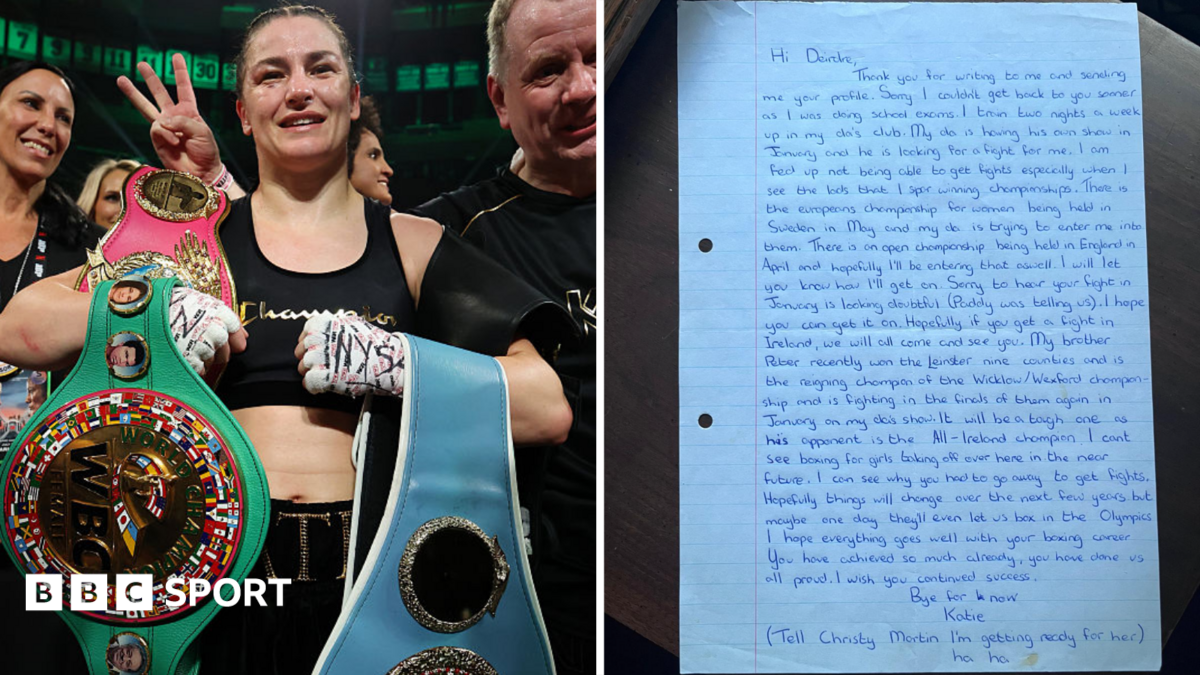 7 9 11 30
Champion
NYS
WORLD
WBC
CHAMPION
BBC SPORT
Hi Deirdre,
Thank you for writing to me and sending
me your profile. Sorry I couldn't get back to you sooner
as I was doing school exams. I train two nights a week
up in my da's club. My da is having his own show in
January and he is looking for a fight for me. I am
fed up not being able to get fights especially when I
see the lads that I spar winning championships. There is
the europeans championship for women being held in
Sweden in May and my da is trying to enter me into
them. There is an open championship being held in England in
April and hopefully I'll be entering that aswell. I will let
you know how I'll get on. Sorry to hear your fight in
January is looking doubtful (Paddy was telling us). I hope
you can get it on. Hopefully if you get a fight in
Ireland, we will all come and see you. My brother
Peter recently won the Leinster nine counties and is
the reigning champion of the Wicklow/Wexford champion-
ship and is fighting in the finals of them again in
January on my da's show. It will be a tough one as
his opponent is the All-Ireland champion. I cant
see boxing for girls taking off over here in the near
future. I can see why you had to go away to get fights.
Hopefully things will change over the next few years but
maybe one day they'll even let us box in the Olympics
I hope everything goes well with your boxing career
You have achieved so much already, you have done us
all proud. I wish you continued success.
Bye for know
Katie
(Tell Christy Martin I'm getting ready for her)
ha ha